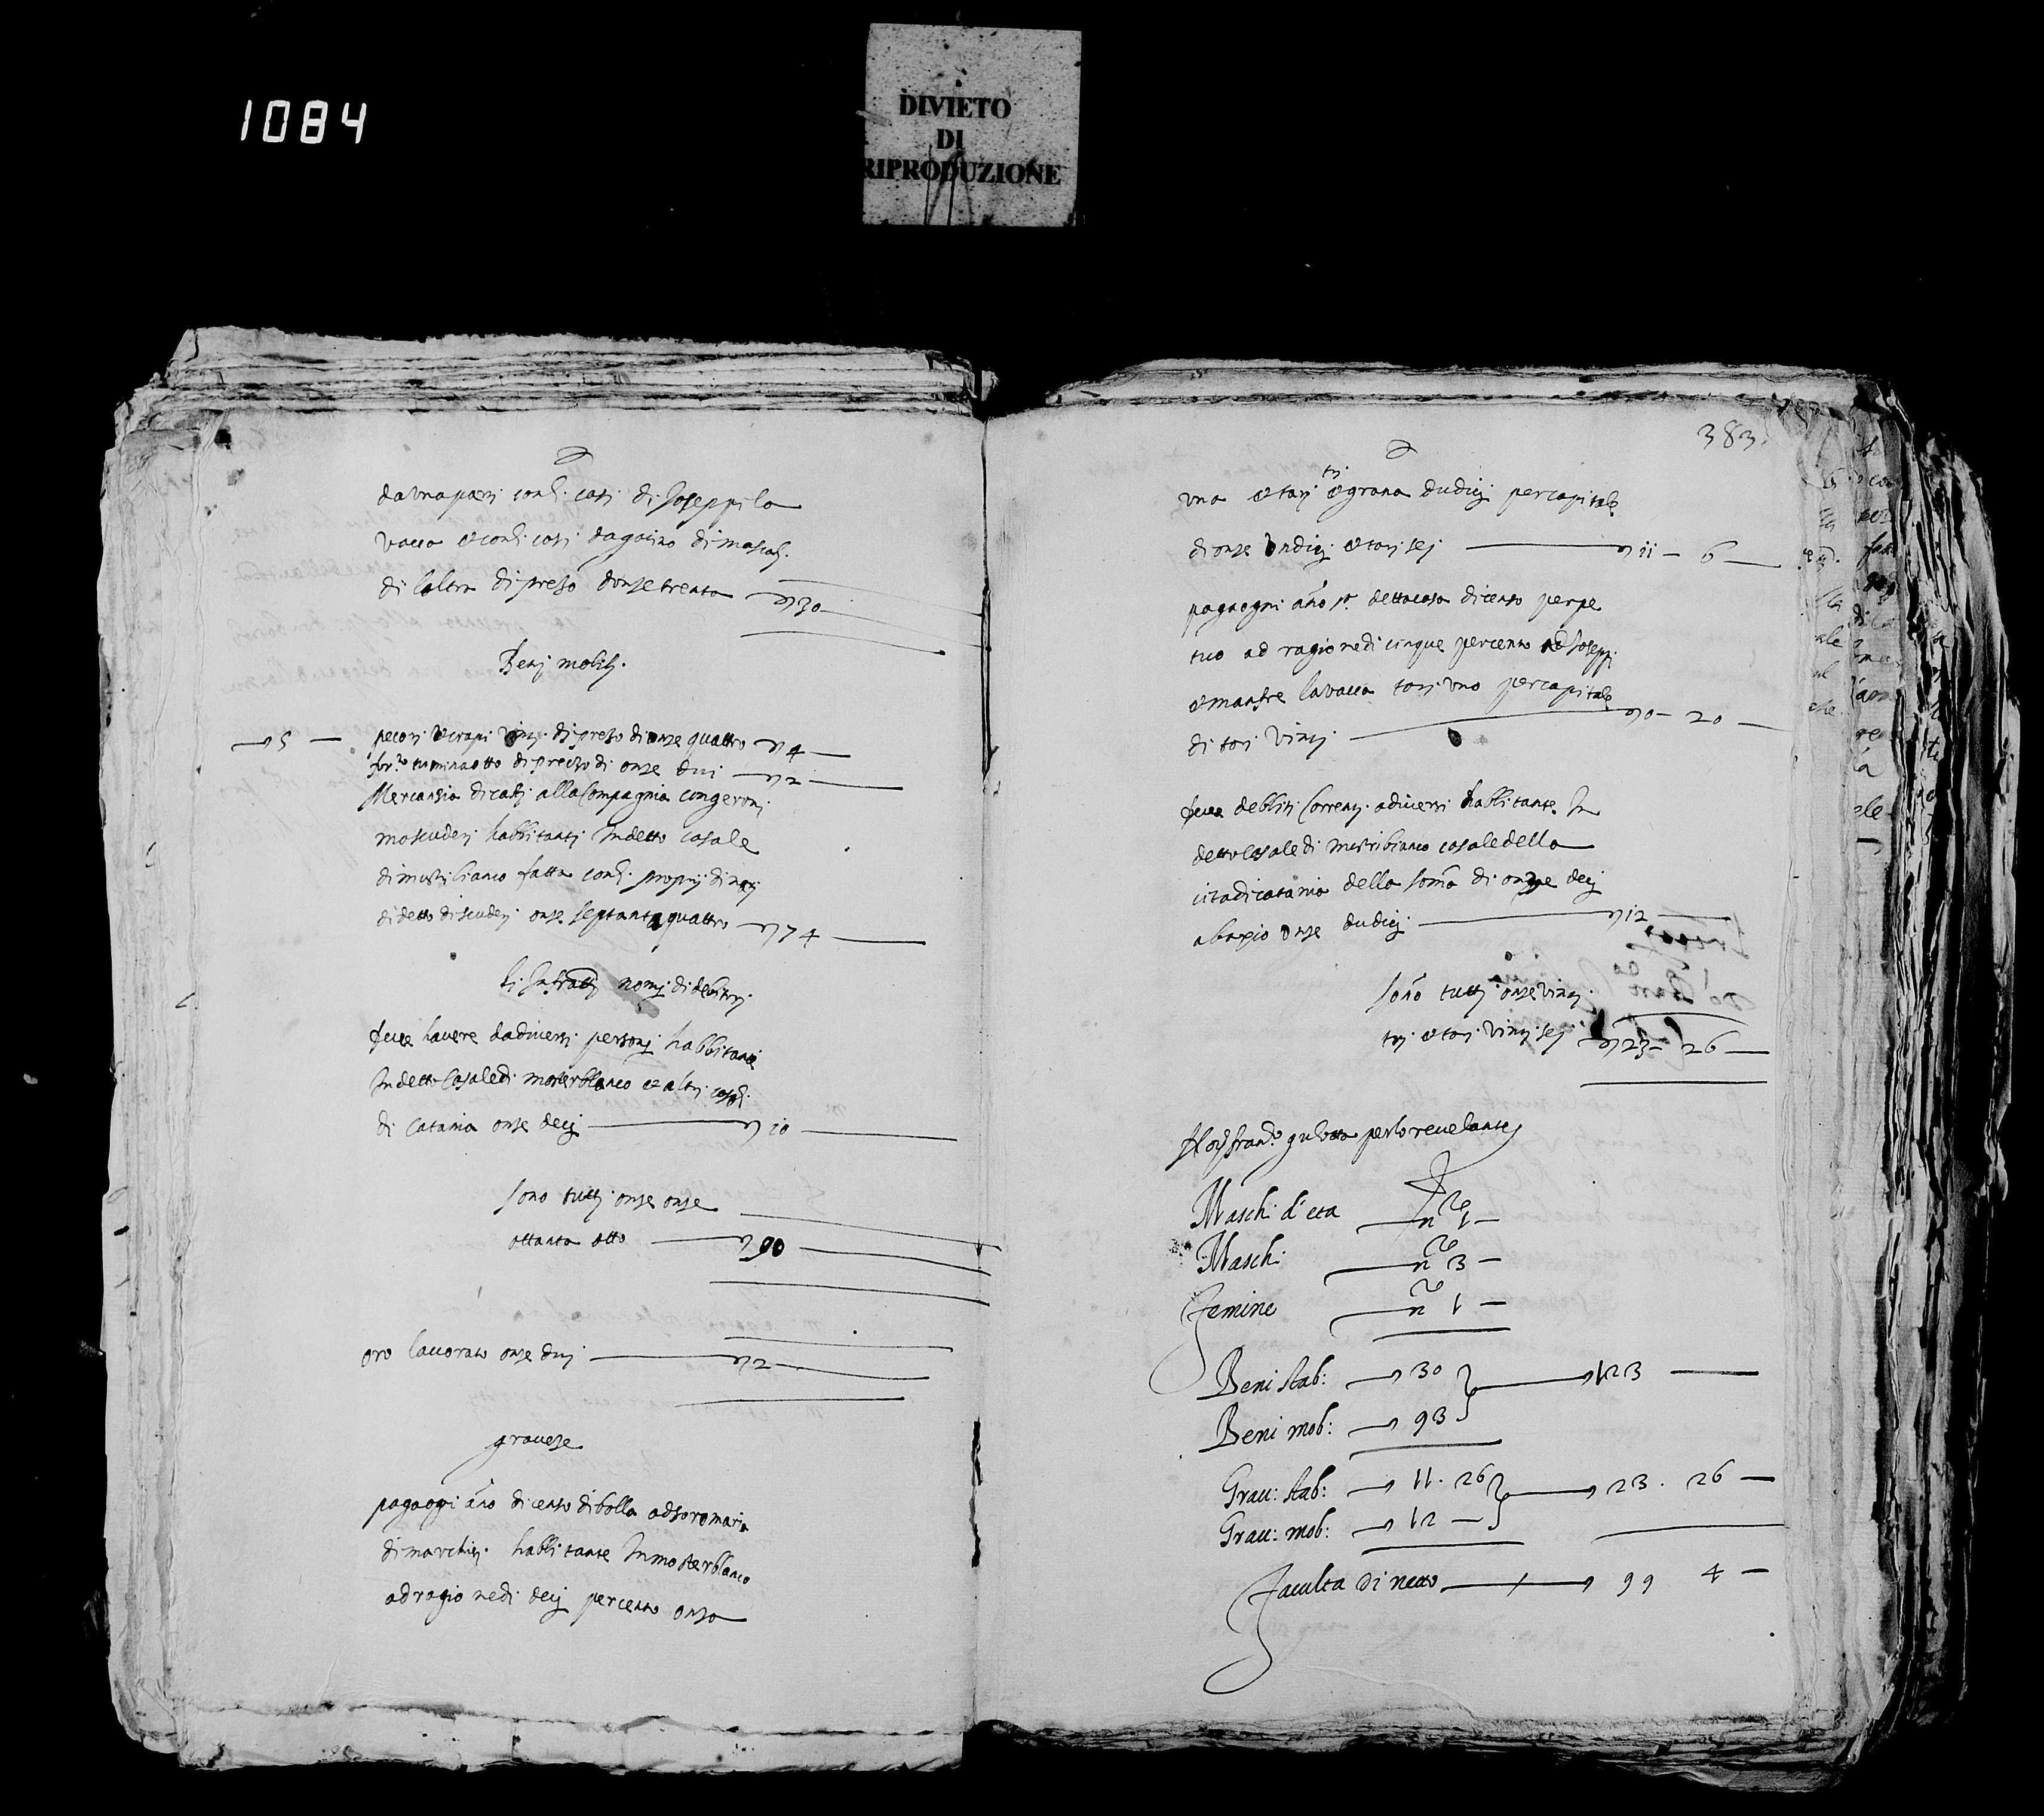 1084
DIVIETO
DI
RIPRODUZIONE
da una parti con li casi di Joseppi la
vacca et con li casi dagatino di mascali
di laltra di prezo donze trenta 30
Beni mobili.
5 pecori et crapi vinti di prezo di onze quattro 4
for.to tumina otto di prezo di onze dui 2
Mercansia di casi alla Compagnia con geronj.
mascuderi habbitanti In detto casale
di mistribianco fatta con li proprij dinari
di detto di scuderi onze septanta quattro 74
li Infratti nomj di debitori
deve havere da diversi personi habbitanti
In detto Casale di mosterblanco et altri casali
di Catania onze deci 10
sono tutti onze onze
ottanta otto 90
oro lavorato onze dui 2
graveze
paga ogni ano di censo di bolla ad soro maria
di marchisi habbitante In mosterblanco
ad ragione di deci per cento onza
383
una et tari tri et grana dudici per capitale
di onze Undici et tari sej 11 - 6
paga ogni ano sp.a detta casa di censo perpe
tuo ad ragione di cinque per cento ad Joseppi
et manfre la vacca tari uno per capitale
di tari vinti 0 - 20
deve debbiti Correnti a diversi habbitante In
detto Casale di mistribianco casale della
cita di catania della soma di onze deci
abaxio onze dudici 12
sono tutti onze vinti
tri et tari vinti sej 23 - 26
Maschi d'eta n 1
Maschi n 3
Femine n 1
Beni stab: 30 123
Beni mob: 93
Grau: stab: 11. 26 23. 26
Grau: mob: 12
Faculta di netto 99 4